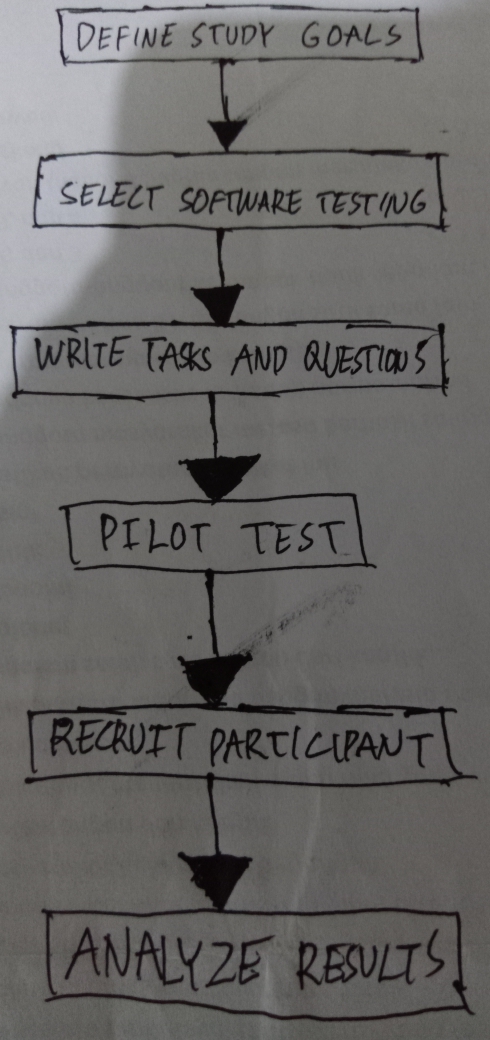 DEFINE STUDY GOALS
SELECT SOFTWARE TESTING
WRITE TASKS AND QUESTIONS
PILOT TEST
RECRUIT PARTICIPANT
ANALYZE RESULTS